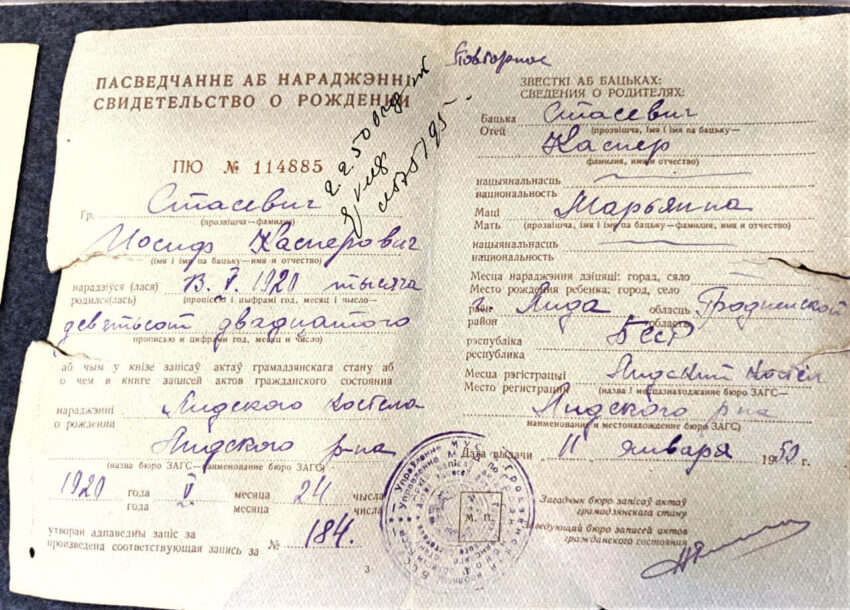 ПАСВЕДЧАННЕ АБ НАРАДЖЭННІ
СВИДЕТЕЛЬСТВО О РОЖДЕНИИ
ПЮ № 114885
Гр. Стасевич
(прозвішча—фамилия)
Иосиф Касперович
(імя і імя па бацьку—имя и отчество)
нарадзіўся (лася) 13. V. 1920 тысяча
родился(лась) (прапісью і цыфрамі год, месяц і чысло—
девятьсот двадцатого
прописью и цифрами год, месяц и число)
аб чым у кнізе запісаў актаў грамадзянскага стану аб
о чем в книге записей актов гражданского состояния
нараджэнні Лидского костела
о рождении
Лидского р-на
(назва бюро ЗАГС—наименование бюро ЗАГС)
1920 года V месяца 24 чысла
года месяца числа
утворан адпаведны запіс за № 184.
произведена соответствующая запись за
3
Повторное
ЗВЕСТКІ АБ БАЦЬКАХ:
СВЕДЕНИЯ О РОДИТЕЛЯХ:
Бацька Стасевич
Отец (прозвішча, імя і імя па бацьку—
Каспер
фамилия, имя и отчество)
нацыянальнасць
национальность
Маці Марьянна
Мать (прозвішча, імя і імя па бацьку—фамилия, имя и отчество)
нацыянальнасць
национальность
Месца нараджэння дзіцяці: горад, сяло
Место рождения ребенка: город, село
раён г. Лида обласць Гродненской
район область
рэспубліка БССР
республика
Месца рэгістрацыі Лидский костел
Место регистрации (назва і месцазнаходжанне бюро ЗАГС—
Лидского р-на
наименование и местонахождение бюро ЗАГС)
Дата выдачи 11 января 1950 г.
М. П.
Загадчык бюро запісаў актаў
грамадзянскага стану
Заведующий бюро записей актов
гражданского состояния